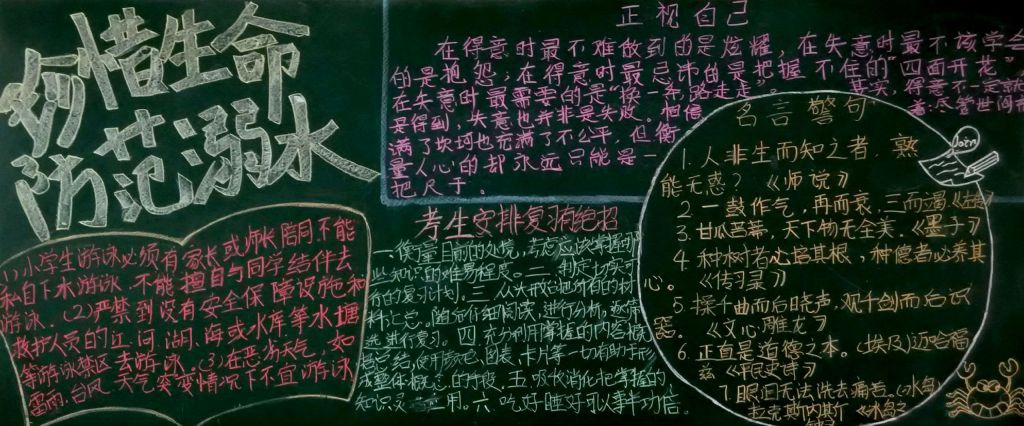 珍惜生命
防范溺水
(1)小学生游泳必须有家长或师长陪同.不能
私自下水游泳.不能擅自与同学结伴去
游泳.(2)严禁到没有安全保障设施和
救护人员的江、河、湖、海或水库等水塘
等游泳禁区去游泳.(3)在恶劣天气,如
雷雨、台风、天气突变情况下不宜游泳
正视自己
在得意时最不难做到的是炫耀,在失意时最不该学会
的是抱怨;在得意时最忌讳的是把握不住的"四面开花",
在失意时最需要的是"换一条路走走"。其实,得意不一定就
是得到,失意也并非是失败。相信 着:尽管世间
满了坎坷也充满了不公平,但衡
量人心的却永远只能是一
把尺子。
考生安排复习有绝招
一.衡量目前的处境,
知识的难易程度。二.制定切实可
行的复习计划。三.从大
进行复习。四.充分利用掌握的内容
总结,使用标记、图表、卡片等一切有助于形
成整体概念的手段。五.吸收消化把掌握的
知识灵活应用。六.吃好睡好可以事半功倍。
名言警句
1.人非生而知之者,孰
能无惑?《师说》
2.一鼓作气,再而衰,三而竭
3.甘瓜苦蒂,天下物无全美.《墨子》
4.种树者必培其根,种德者必养其
心。《传习录》
5.操千曲而后晓声,观千剑而后识
器。《文心雕龙》
6.正直是道德之本.(埃及)迈哈福
兹《平民史诗》
7.眼泪无法洗去痛苦.(冰岛)
拉克斯内斯《冰岛之